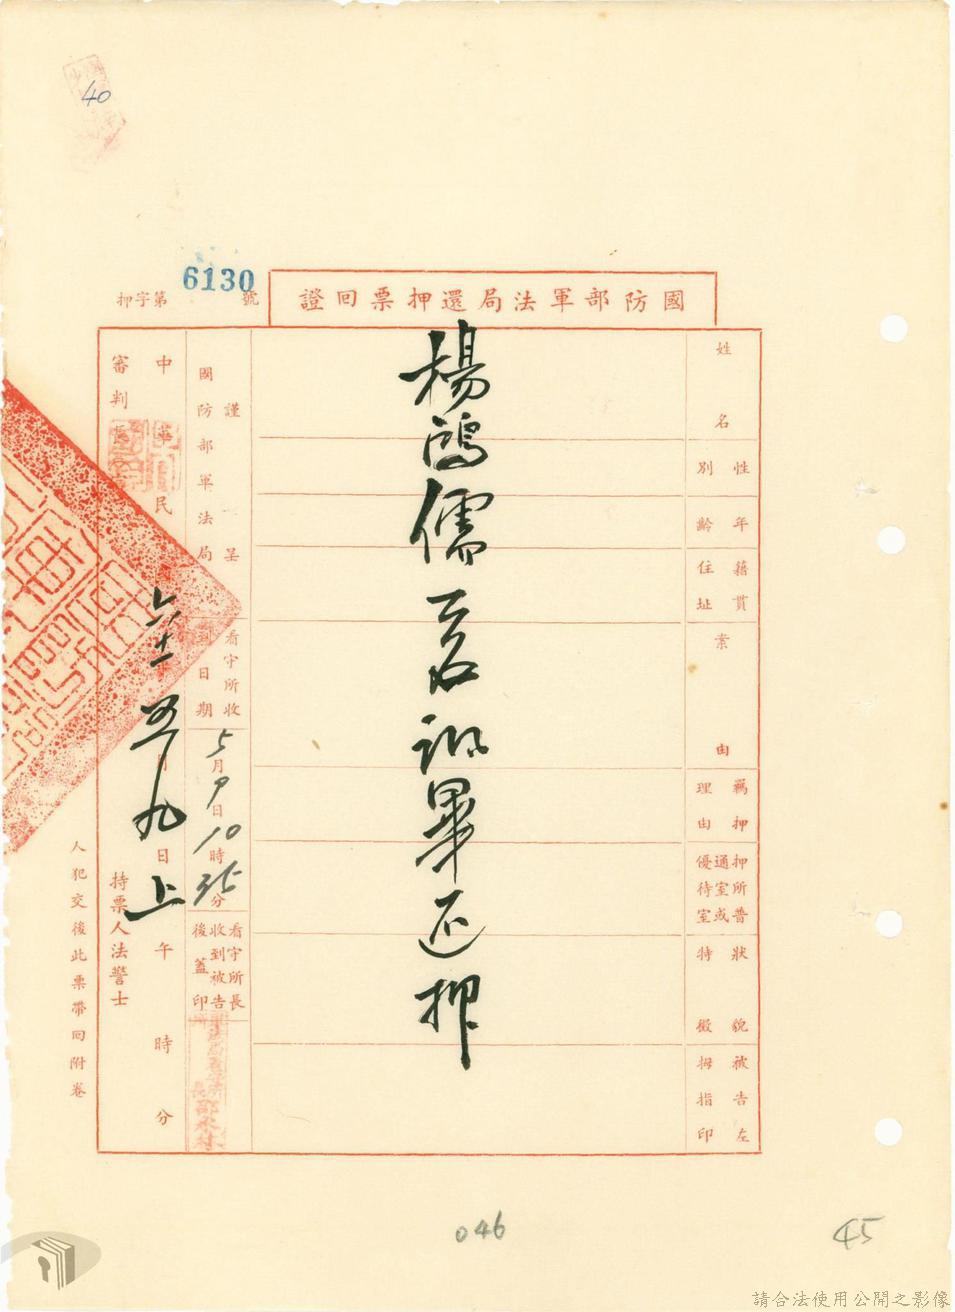 40
國防部軍法局還押票回證
押字第6130號
姓名
性別
年齡
籍貫
住址
案由
羈押理由
押所普通室或優待室
狀貌特徵
被告左拇指印
楊鴻儒君訊畢還押
謹呈
國防部軍法局
看守所收到日期
5月9日10時35分
看守所長收到被告後蓋印
中華民國六十一年五月九日上午 時 分
審判長
持票人法警士
人犯交後此票帶回附卷
046
45
請合法使用公開之影像